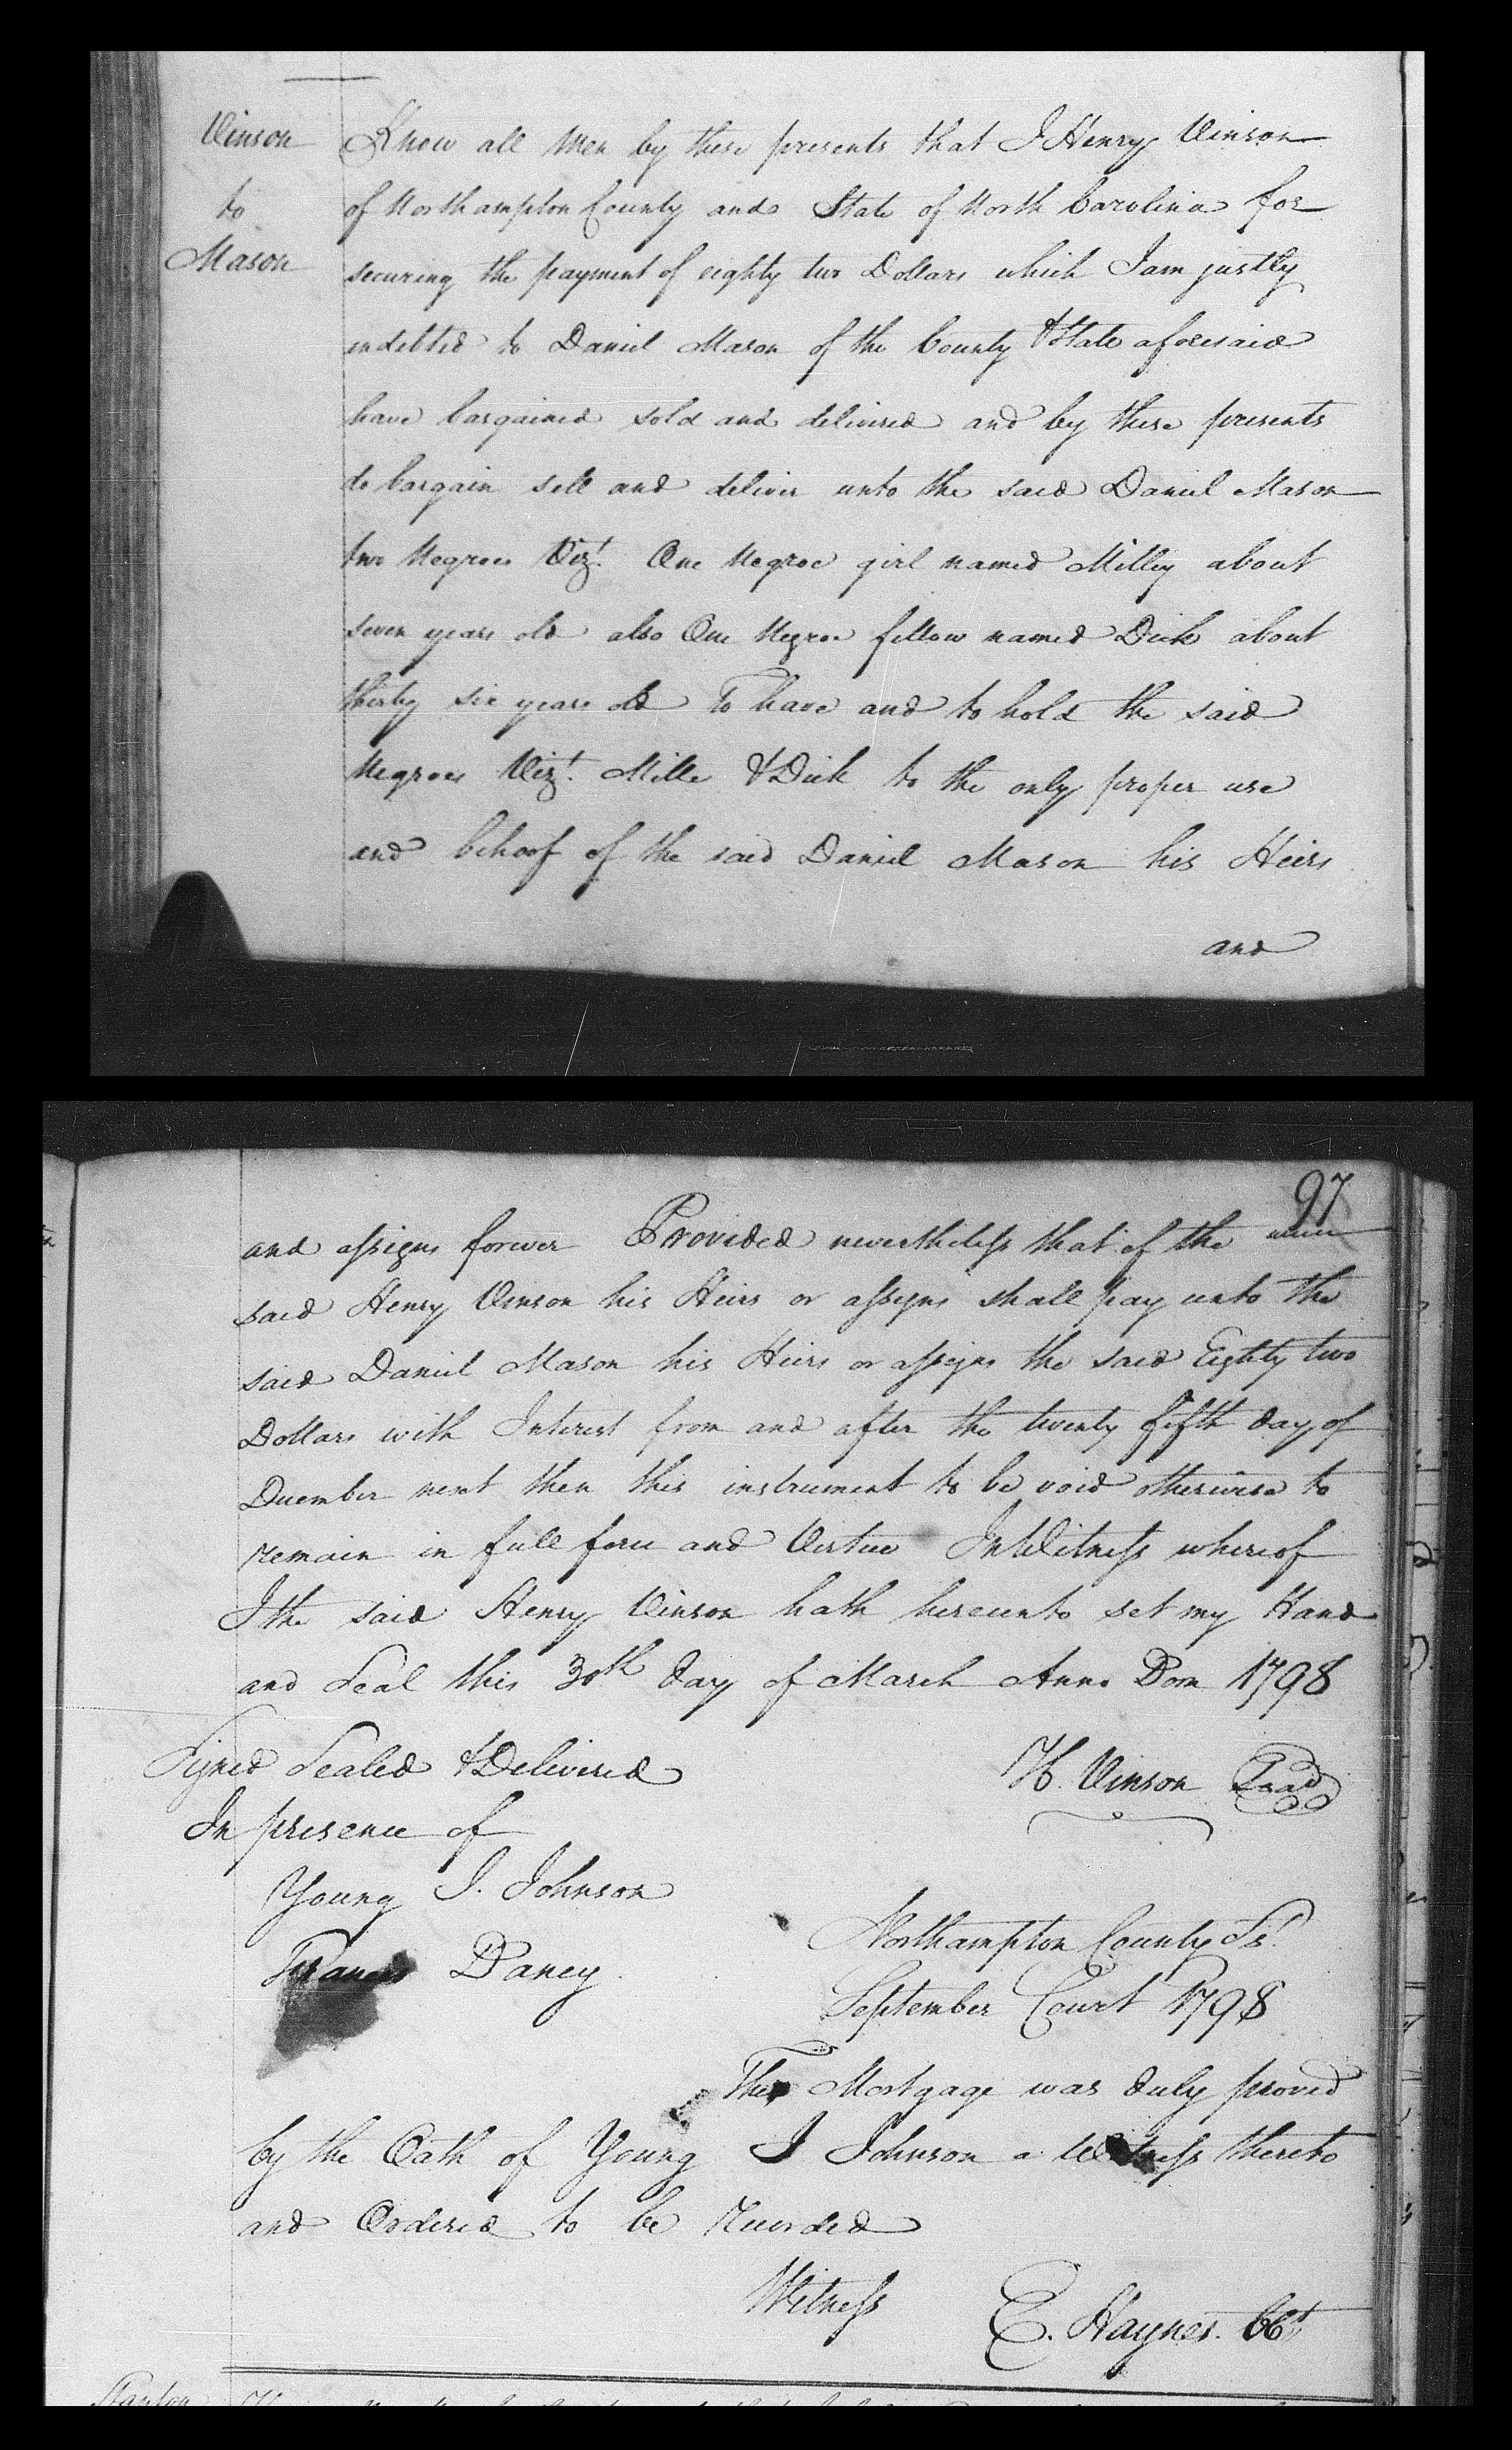 Vinson
to
Mason
Know all Men by these presents that I Henry Vinson
of Northampton County and State of North Carolina for
securing the payment of eighty two Dollars which I am justly
indebted to Daniel Mason of the County & State aforesaid
have bargained sold and delivered and by these presents
do bargain sell and deliver unto the said Daniel Mason
two Negroes Vizt. One Negroe girl named Milley about
seven years old also One Negroe fellow named Dick about
thirty six years old To have and to hold the said
Negroes Vizt. Mille & Dick to the only proper use
and behoof of the said Daniel Mason his Heirs
and
97
and assigns forever Provided nevertheless that if the
said Henry Vinson his Heirs or assigns shall pay unto the
said Daniel Mason his Heirs or assigns the said Eighty two
Dollars with Interest from and after the twenty fifth day of
December next then this instrument to be void otherwise to
remain in full force and Virtue In Witness whereof
I the said Henry Vinson hath hereunto set my Hand
and Seal this 30th day of March Anno Dom 1798
Signed Sealed & Delivered
H. Vinson Seal
In presence of
Young J. Johnson
Francis Dancy.
Northampton County Ss.
September Court 1798
This Mortgage was duly proved
by the Oath of Young J Johnson a Witness thereto
and Ordered to be recorded
Witness E. Haynes. CCt
Stanton